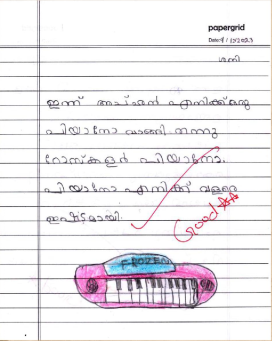 papergrid
Date: 9 / 12/2023
ശനി
ഇന്ന് അച്ഛൻ എനിക്ക് ഒരു
പിയാനോ വാങ്ങി തന്നു
റോസ്കളർ പിയാനോ.
പിയാനോ എനിക്ക് വളരെ
ഇഷ്ടമായി.
Good
FROZEN